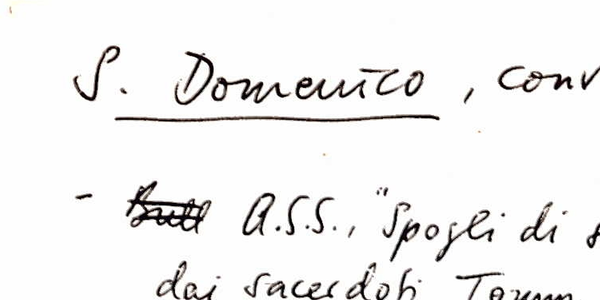 S. Domenico, conv
- A.S.S., "Spogli di s
dai sacerdoti Tomm.